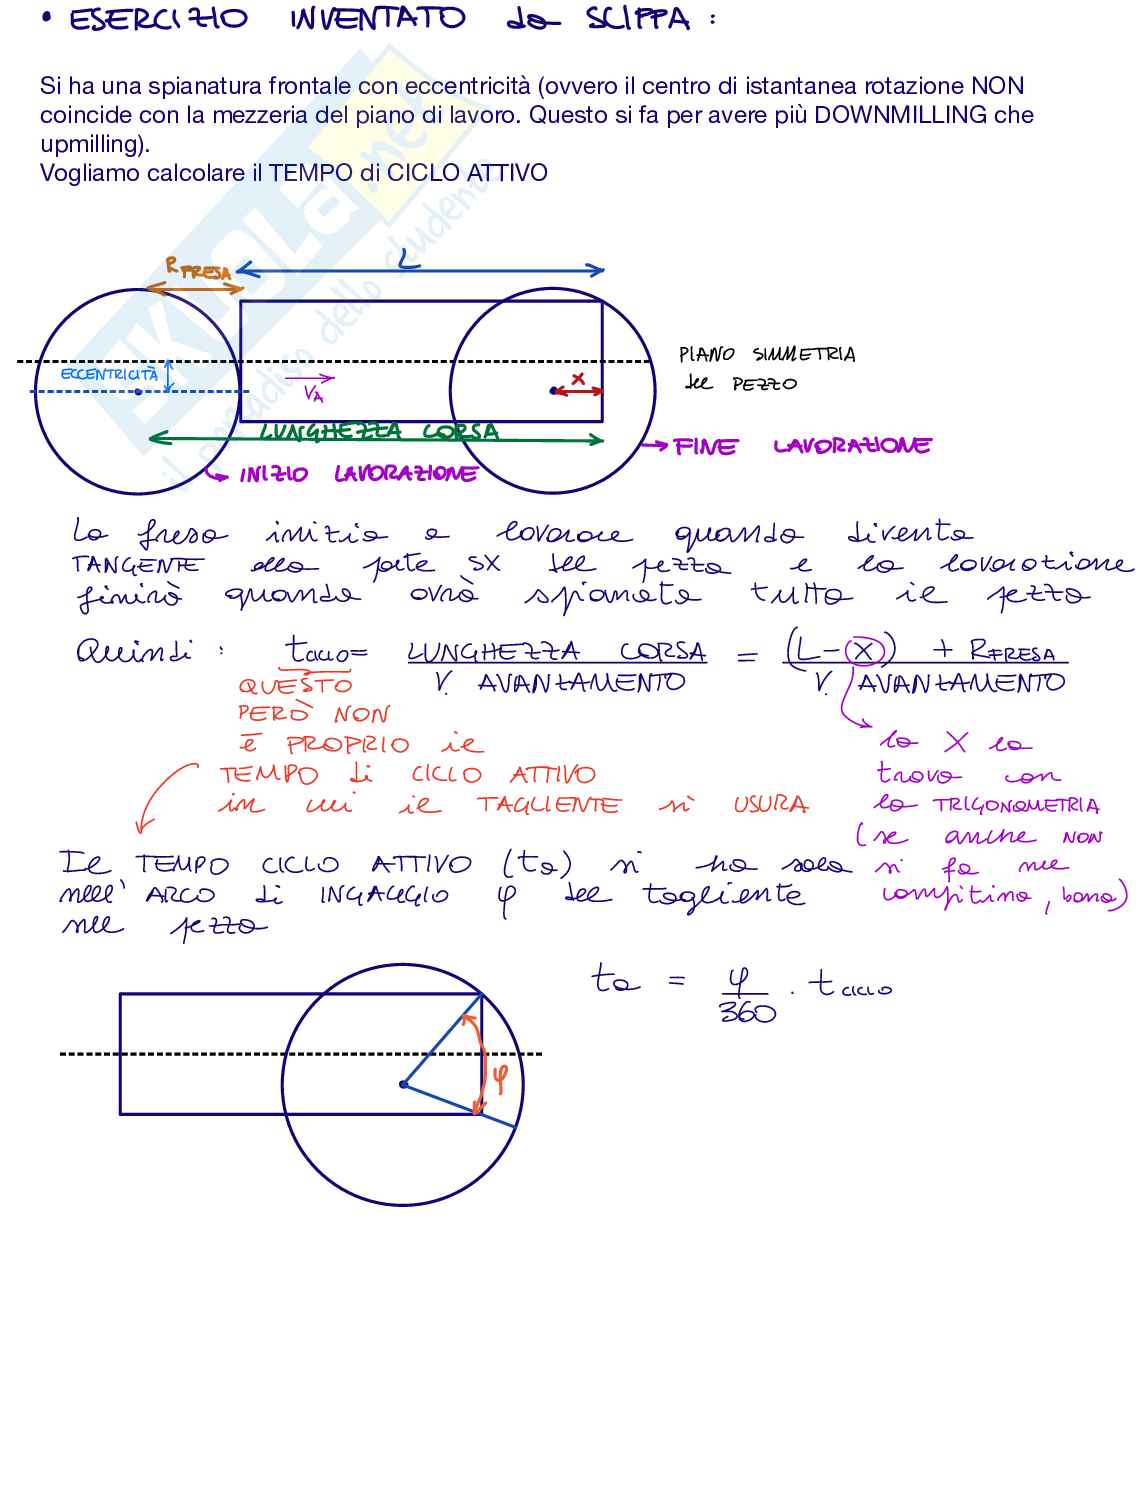 • ESERCIZIO INVENTATO da SCIPPA :
Si ha una spianatura frontale con eccentricità (ovvero il centro di istantanea rotazione NON
coincide con la mezzeria del piano di lavoro. Questo si fa per avere più DOWNMILLING che
upmilling).
Vogliamo calcolare il TEMPO di CICLO ATTIVO
SKUOLA.net
il paradiso dello studente
R FRESA
L
PIANO SIMMETRIA
del PEZZO
ECCENTRICITÀ
VA
X
LUNGHEZZA CORSA
FINE LAVORAZIONE
INIZIO LAVORAZIONE
La fresa inizia a lavorare quando diventa
TANGENTE alla parte SX del pezzo e la lavorazione
finirà quando avrà spianata tutto il pezzo
Quindi : tciclo = LUNGHEZZA CORSA / V. AVANZAMENTO = (L-X) + RFRESA / V. AVANZAMENTO
QUESTO
PERÒ NON
È PROPRIO il
TEMPO di CICLO ATTIVO
in cui il TAGLIENTE si USURA
la X la
trovo con
la TRIGONOMETRIA
(se anche NON
si fa nel
compitino, bona)
Il TEMPO CICLO ATTIVO (ta) si ha solo
nell' ARCO di INGAGGIO φ del tagliente
nel pezzo
ta = φ/360 · tciclo
φ